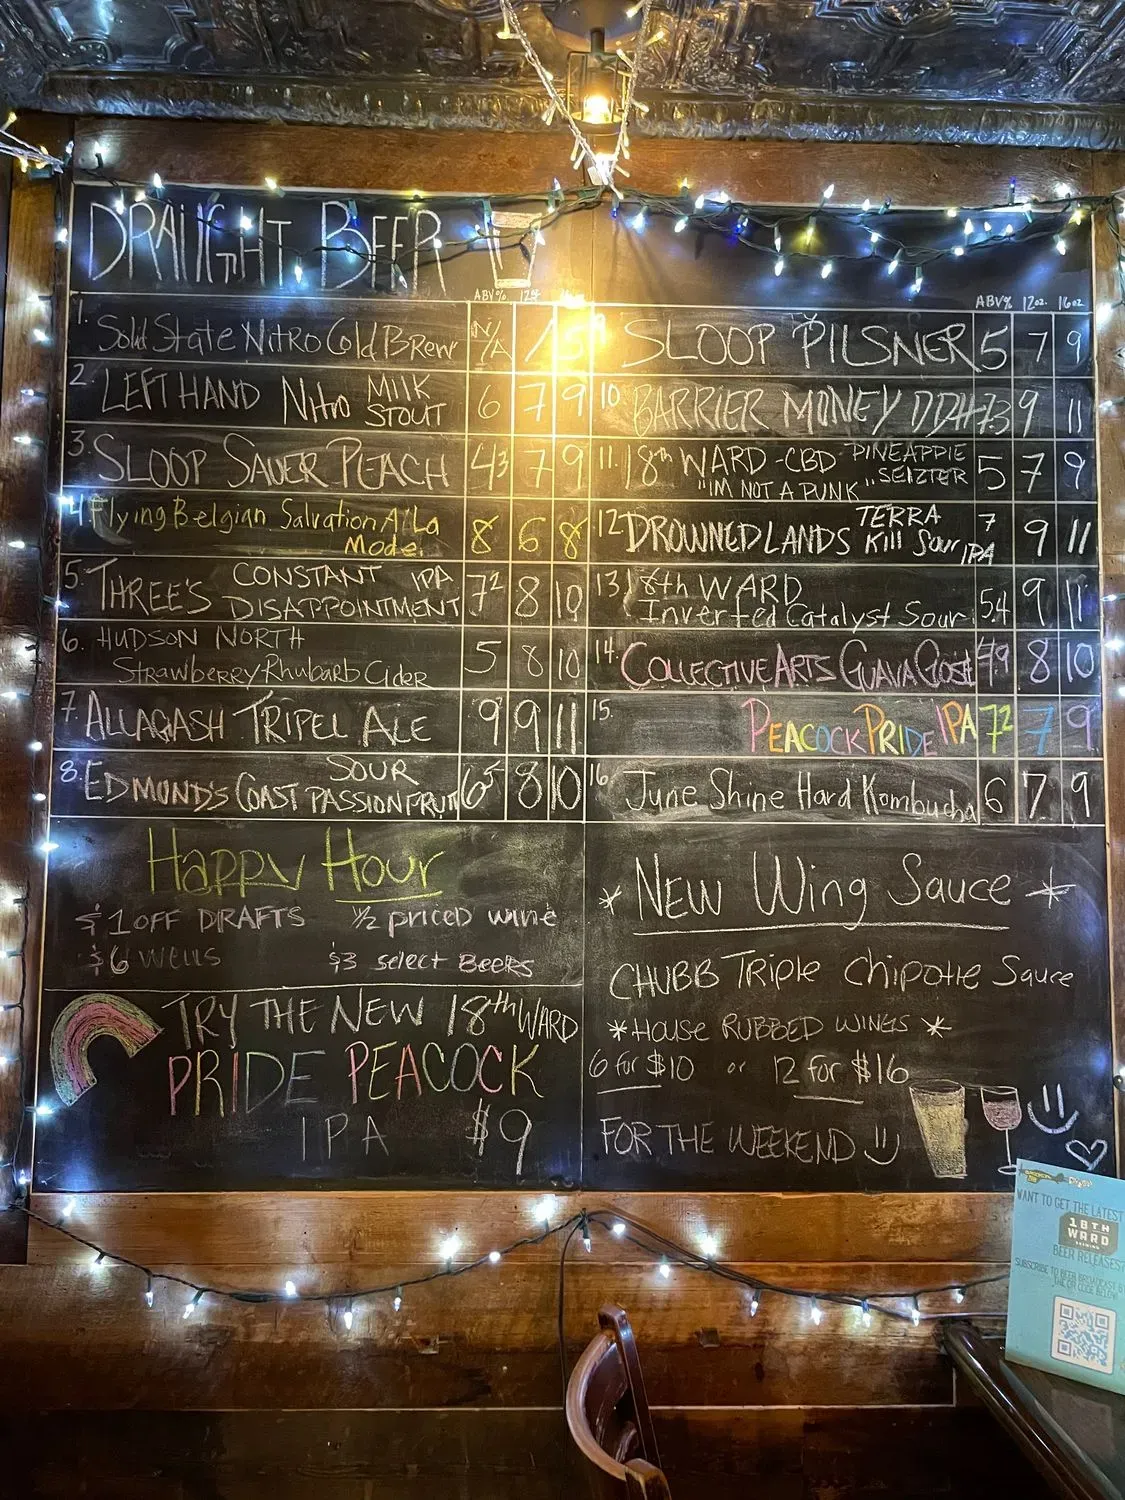 DRAUGHT BEER
ABV% 12oz
1. Solid State Nitro Cold Brew N/A / 5
2. LEFT HAND Nitro MILK STOUT 6 7 9
3. SLOOP SAUER PEACH 4.3 7 9
4. Flying Belgian Salvation A La Mode. 8 6 8
5. THREE'S CONSTANT DISAPPOINTMENT IPA 7.2 8 10
6. HUDSON NORTH
Strawberry Rhubarb Cider 5 8 10
7. ALLAGASH TRIPEL ALE 9 9 11
8. EDMOND'S COAST SOUR PASSIONFRUIT 6.5 8 10
ABV% 12oz. 16oz
9. SLOOP PILSNER 5 7 9
10. BARRIER MONEY DDH 7.3 9 11
11. 18th WARD - CBD PINEAPPLE SELZTER
"IM NOT A PUNK" 5 7 9
12. DROWNED LANDS TERRA Kill Sour IPA 7 9 11
13. 18th WARD
Inverted Catalyst Sour 5.4 9 11
14. COLLECTIVE ARTS GUAVA GOSE 4.9 8 10
15. PEACOCK PRIDE IPA 7.2 7 9
16. June Shine Hard Kombucha 6 7 9
Happy Hour
$1 OFF DRAFTS ½ priced wine
$6 wells $3 select Beers
TRY THE NEW 18th WARD
PRIDE PEACOCK
IPA $9
* NEW Wing Sauce *
CHUBB Triple Chipotle Sauce
* HOUSE RUBBED WINGS *
6 for $10 or 12 for $16
FOR THE WEEKEND
WANT TO GET THE LATEST
18TH
WARD
BREWING
BEER RELEASES?
SUBSCRIBE TO BEER BROADCAST
THE QR CODE BELOW!